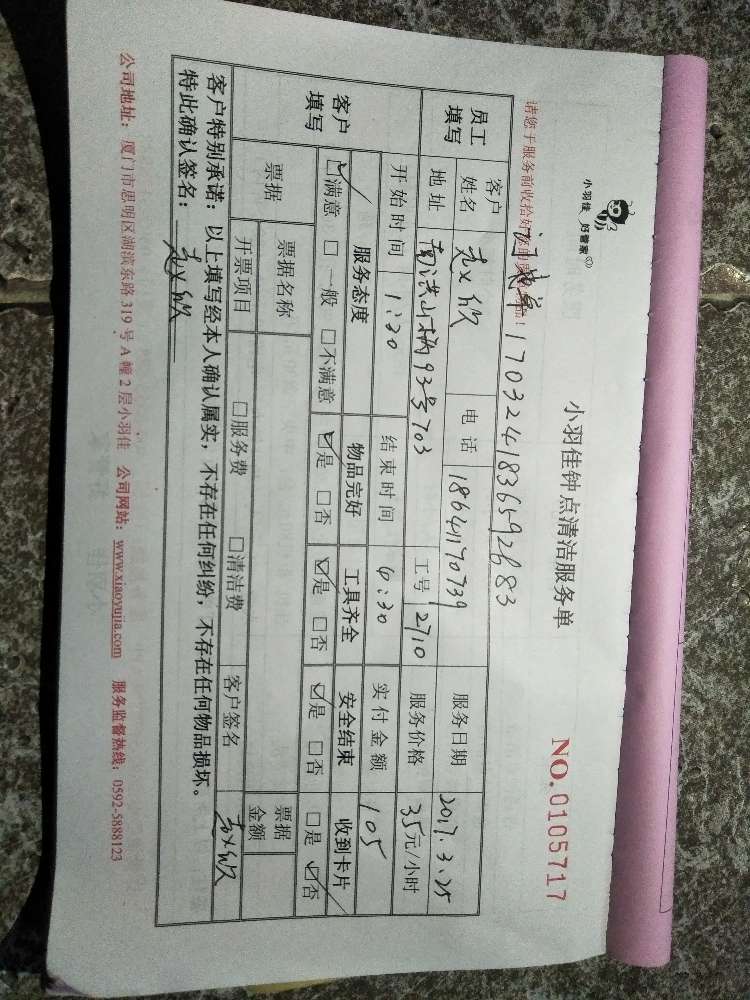 小羽佳 好管家
小羽佳钟点清洁服务单
NO.0105717
请您于服务前收拾好
1703241836592683
员工填写
客户姓名
电话 18641170739
服务日期 2017.3.25
地址 93号703
工号 2710
服务价格 35元/小时
客户填写
开始时间 1:30
结束时间 4:30
实付金额 105
服务态度 物品完好 工具齐全 安全结束 收到卡片
☑满意 □一般 □不满意 ☑是 □否 ☑是 □否 ☑是 □否 □是 ☑否
票据 票据名称 票据金额
开票项目 □服务费 □清洁费 客户签名
客户特别承诺：以上填写经本人确认属实，不存在任何纠纷，不存在任何物品损坏。
特此确认签名：
公司地址：厦门市思明区湖滨东路319号A幢2层小羽佳 公司网站：www.xiaoyujia.com 服务监督热线：0592-5888123